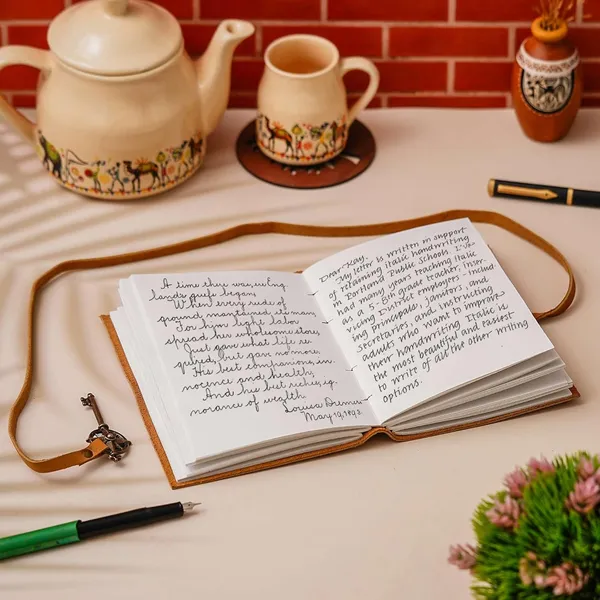 A time there was, ere Eng
lands griefs began,
When every rude of
ground maintained its man,
For him light labor
spread her wholesome store,
Just gave what life re
quired, but gave no more,
His best companions, in
nocence and health,
And his best riches, ig
norance of wealth.
Louisa
May 19, 189
Dear Kay,
My letter is written in support
of retaining italic handwriting
in Portland Public Schools. I've
had many years teaching italic
as a 5-8th grade teacher, inser-
vicing District employers - includ-
ing principals, janitors, and
secretaries, and instructing
adults who want to improve
their handwriting. Italic is
the most beautiful and easiest
to write of all the other writing
options.